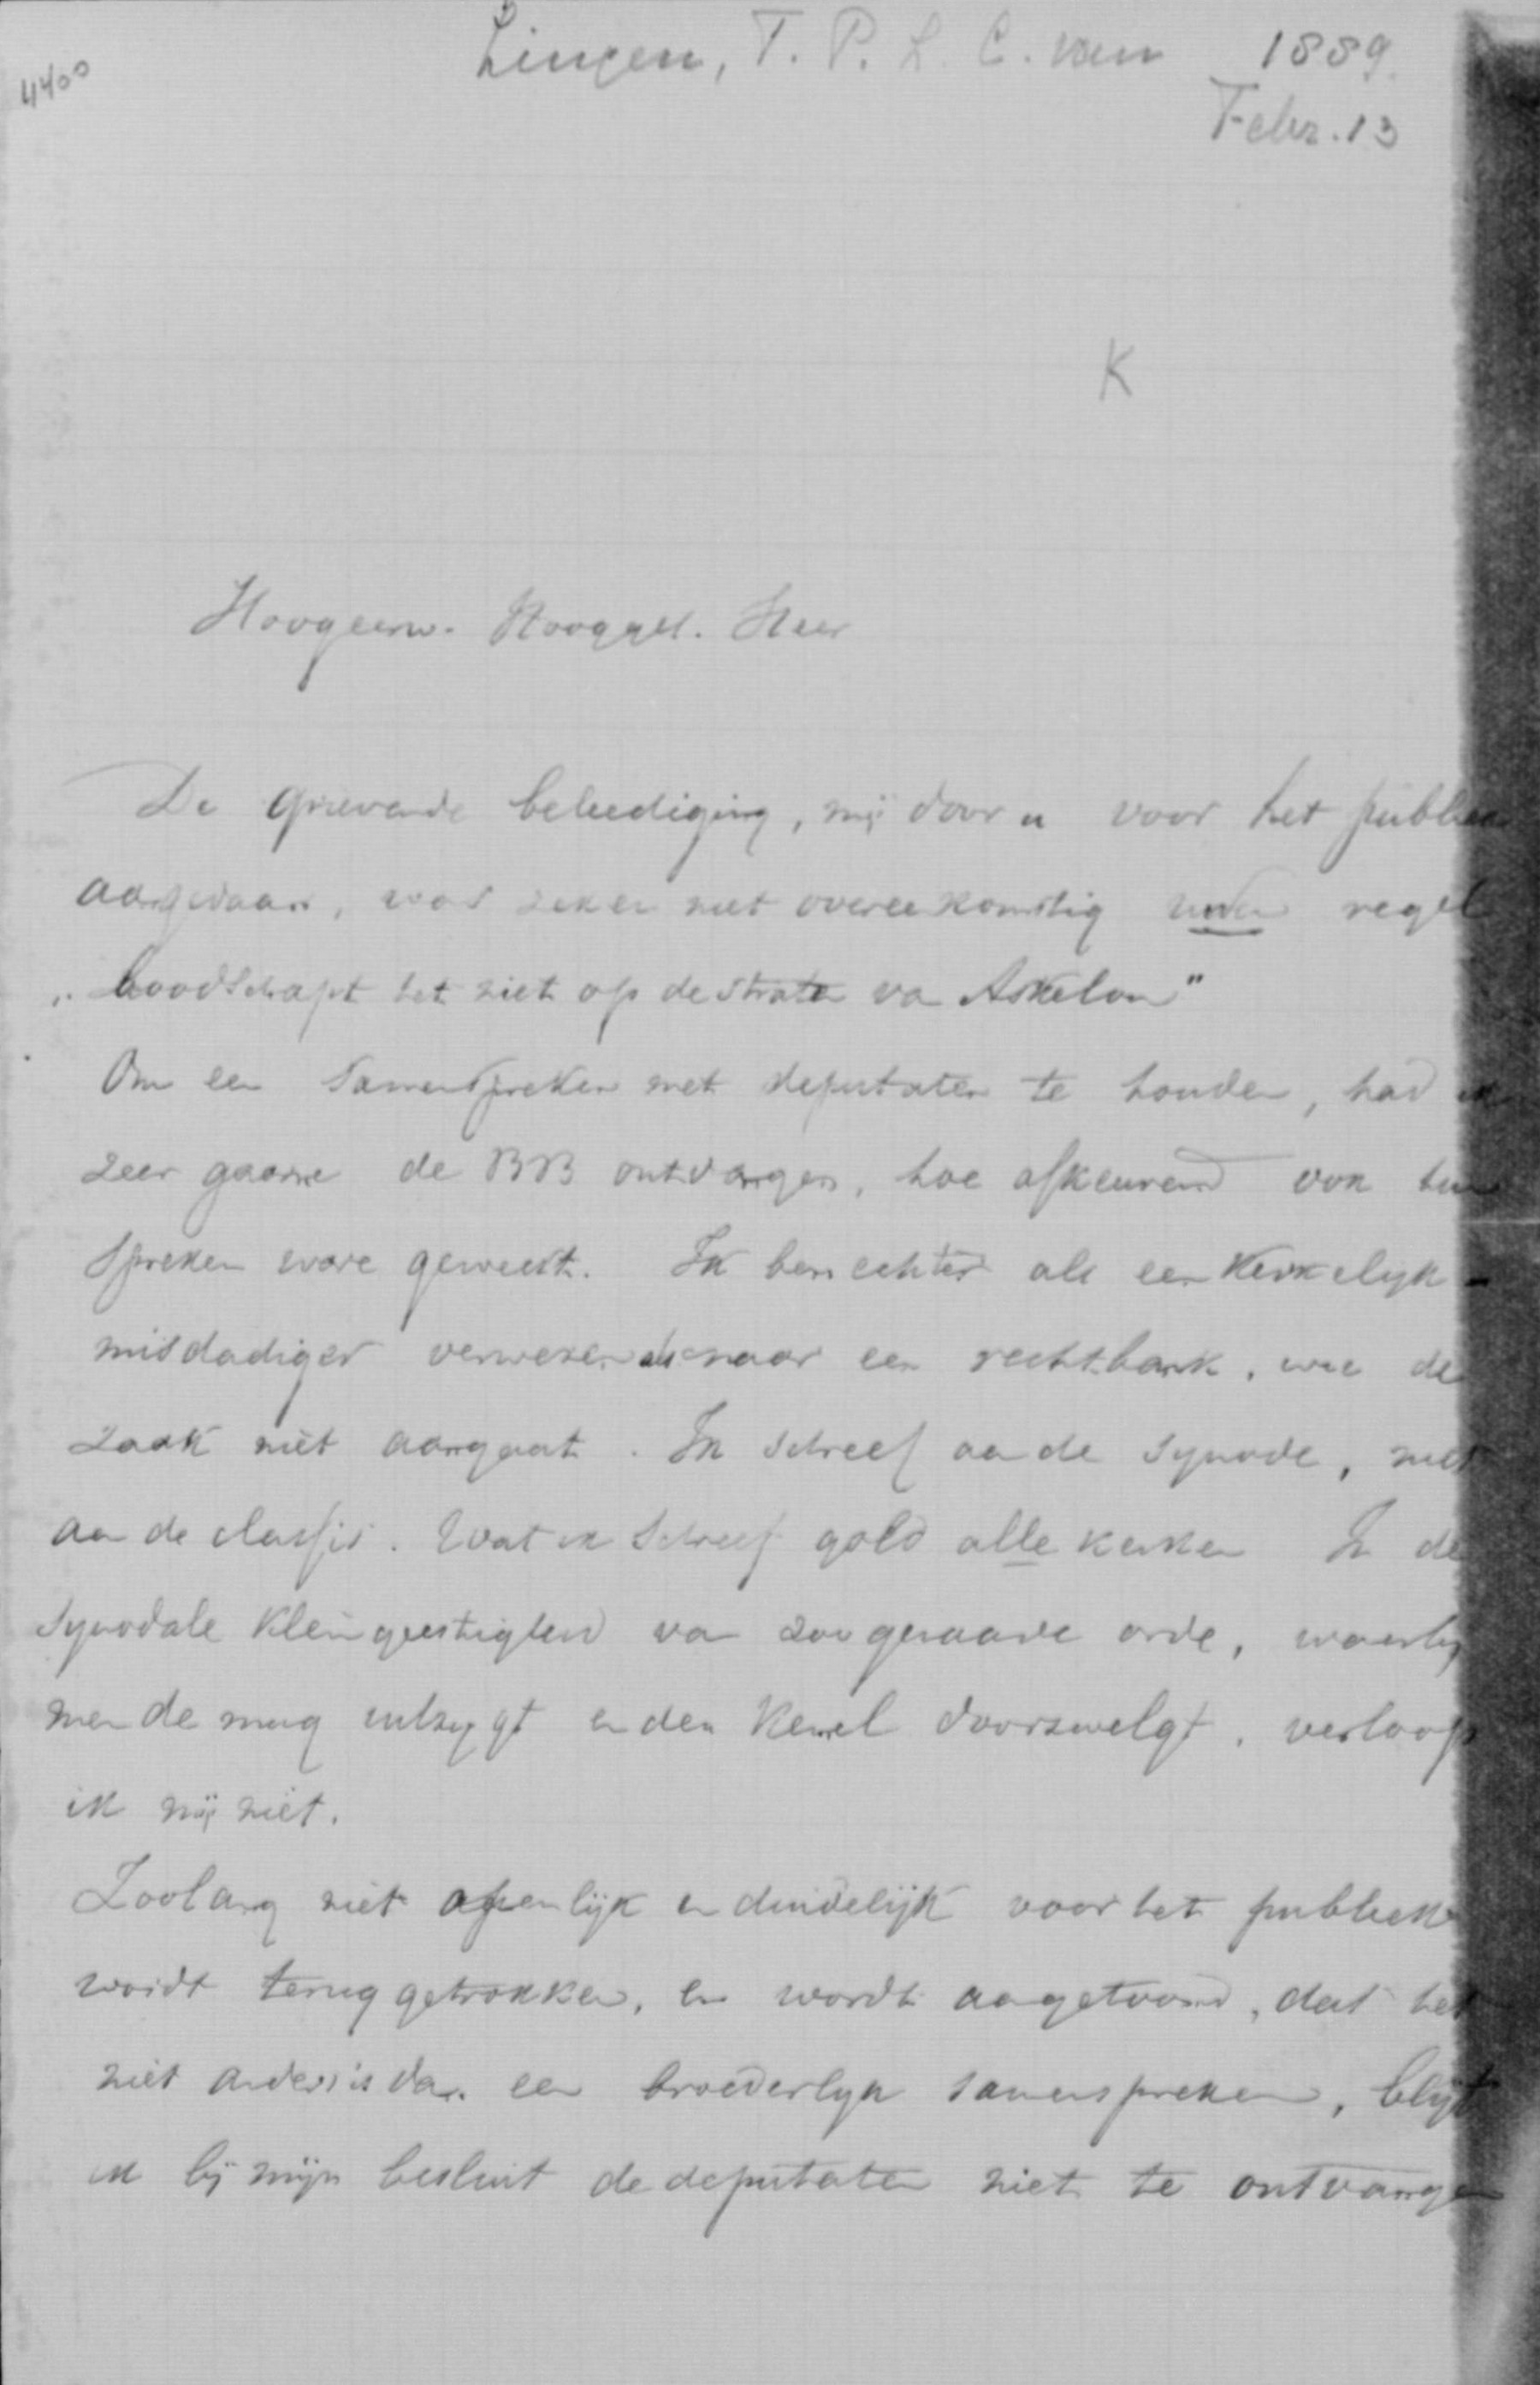 Lingen, T. P. L. C. van 1889.
Febr. 13
4400
K
Hoogeerw. Hooggel. Heer
De grievende beleediging, mij door u voor het publiek
aangedaan, was zeker niet overeenkomstig uwen regel
„boodschapt het niet op de straten van Askelon"
Om een samenspreken met deputaten te houden, had ik
zeer gaarne de BB ontvangen, hoe afkeurend ook hun
spreken ware geweest. Ik ben echter als een kerkelijk
misdadiger verwezen naar een rechtbank, wie de
zaak niet aangaat. Ik schreef aan de synode, niet
aan de classis. Wat ik schreef gold alle kerken In de
synodale kleingeestigheid van zoogenaamde orde, waarbij
men de mug uitzygt en den kemel doorzwelgt, verloop
ik mij niet.
Zoolang niet openlijk en duidelijk voor het publiek
wordt teruggetrokken, en wordt aangetoond, dat het
niet anders is dan een broederlyk samenspreken, blijf
ik bij mijn besluit de deputaten niet te ontvangen